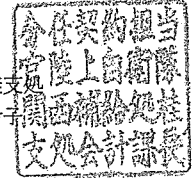 支処
子
分任契約担当
官陸上自衛隊
関西補給処桂
支処会計課長